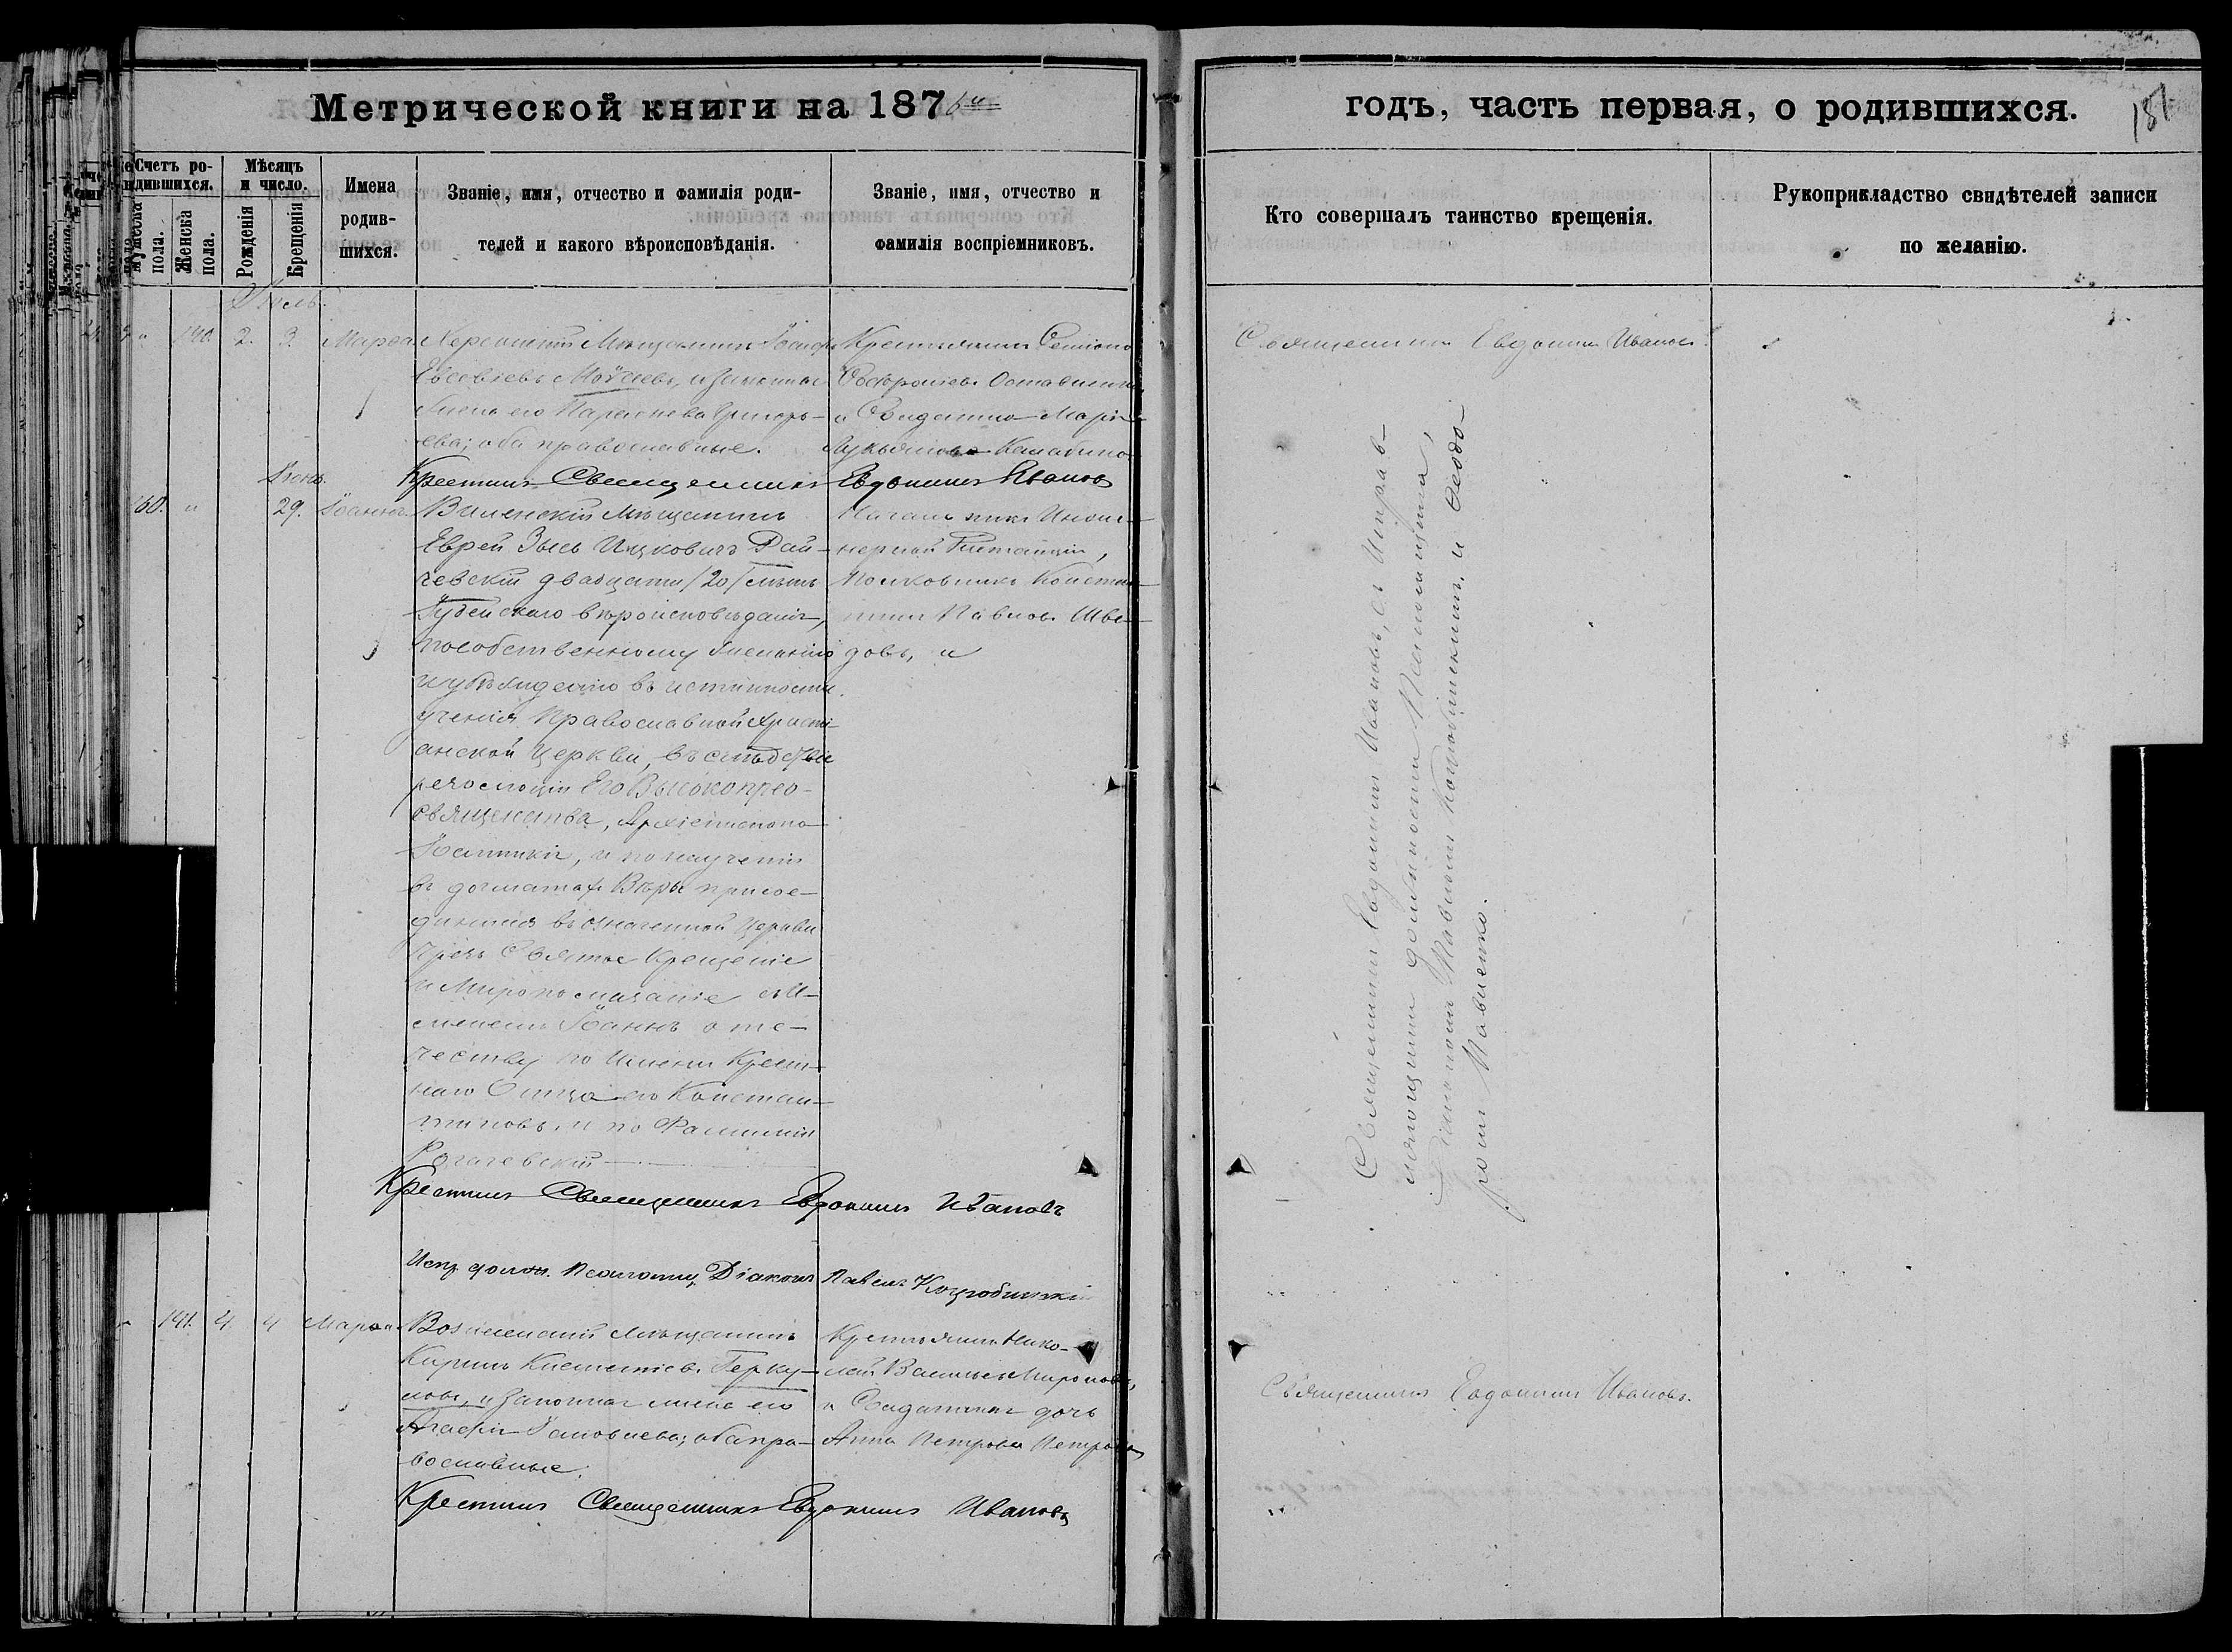 Метрической книги на 1876й
годъ, часть первая, о родившихся.
187
Счетъ родившихся.
Мужеска пола.
Женска пола.
Мѣсяцъ и число.
Рожденія
Крещенія
Имена родившихся.
Званіе, имя, отчество и фамилія родителей и какого вѣроисповѣданія.
Званіе, имя, отчество и фамилія воспріемниковъ.
Кто совершалъ таинство крещенія.
Рукоприкладство свидѣтелей записи по желанію.
140. 2. 3. Марѳа
Херсонскій Мѣщанинъ Іосифъ
Евсевіевъ Моѵсеевъ, и законная
жена его Параскева Григорь-
ева; оба православные.
Крестьянинъ
и Солдатка Марія
Лукьянова
Священникъ Евдокимъ Ивановъ.
Крестилъ Священникъ Евдокимъ Ивановъ
Іюнь.
60. " 29. Іоаннъ
Виленскій Мѣщанинъ
Еврей Зысь Ицковичъ
двадцати /20/ лѣтъ
Іудейскаго вѣроисповѣданія,
по собственному желанію
и убѣжденію въ истинности
ученія Православной Христі-
анской Церкви, въ слѣдствіи
резолюціи Его Высокопрео-
священства, Архіепископа
Іоанникія, и по наученіи
въ догматахъ Вѣры присое-
диненъ въ означенной Церкви
чрезъ Святое Крещеніе
и Миропомазаніе съ И-
менемъ Іоаннъ оте-
честву по Имени Крест-
наго Отца его Констан-
тиновъ, и по Фамиліи
Рогачевскій
Начальникъ Инже-
нерной Дистанціи,
Полковникъ Констан-
тинъ Павловъ Шве-
довъ, и
Священникъ Евдокимъ Ивановъ, съ Исправ-
ляющимъ должность Псаломщика,
Діакономъ Павломъ Коцюбинскимъ и Ѳеодо-
ромъ Павленко.
Крестилъ Священникъ Евдокимъ Ивановъ
Испр. должн. Псаломщ. Діаконъ Павелъ Коцюбинскій
141. 4. 4 Марѳа
Вознесенскій Мѣщанинъ
Кирилъ Климентіевъ Герку-
ловъ, и законная жена его
Агафія Іаковлева; оба пра-
вославные.
Крестьянинъ Нико-
лай Васильевъ Мироновъ,
и Солдатская дочь
Анна Петрова Петрова
Священникъ Евдокимъ Ивановъ.
Крестилъ Священникъ Евдокимъ Ивановъ